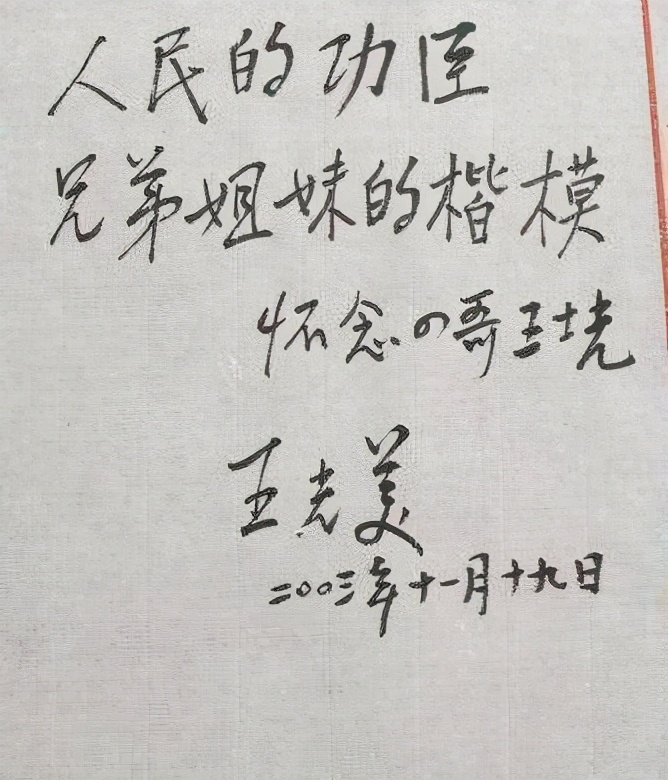 人民的功臣
兄弟姐妹的楷模
怀念四哥王士光
王光美
二〇〇三年十一月十九日